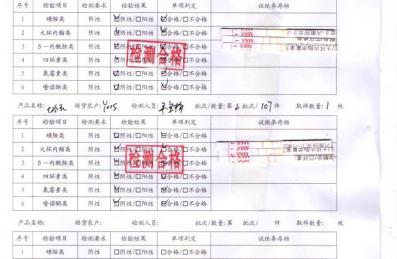 序号 检验项目 检测要求 检验结果 单项判定 试纸条存档
1 磺胺类 阴性 ☑阴性/□阳性 ☑合格/□不合格
2 大环内酯类 阴性 ☑阴性/□阳性 ☑合格/□不合格
3 β-内酰胺类 阴性 ☑阴性/□阳性 ☑合格/□不合格
4 四环素类 阴性 ☑阴性/□阳性 ☑合格/□不合格
5 氟霉素类 阴性 ☑阴性/□阳性 ☑合格/□不合格
6 喹诺酮类 阴性 ☑阴性/□阳性 ☑合格/□不合格
检测合格
产品名称: 供货农户: 检测人员: 批次/数量:第2批/107件 取样数量:1枚
序号 检验项目 检测要求 检验结果 单项判定 试纸条存档
1 磺胺类 阴性 ☑阴性/□阳性 ☑合格/□不合格
2 大环内酯类 阴性 ☑阴性/□阳性 ☑合格/□不合格
3 β-内酰胺类 阴性 ☑阴性/□阳性 ☑合格/□不合格
4 四环素类 阴性 ☑阴性/□阳性 ☑合格/□不合格
5 氟霉素类 阴性 ☑阴性/□阳性 ☑合格/□不合格
6 喹诺酮类 阴性 ☑阴性/□阳性 ☑合格/□不合格
检测合格
产品名称: 供货农户: 检测人员: 批次/数量:第 批/ 件 取样数量: 枚
序号 检验项目 检测要求 检验结果 单项判定 试纸条存档
1 磺胺类 阴性 □阴性/□阳性 □合格/□不合格